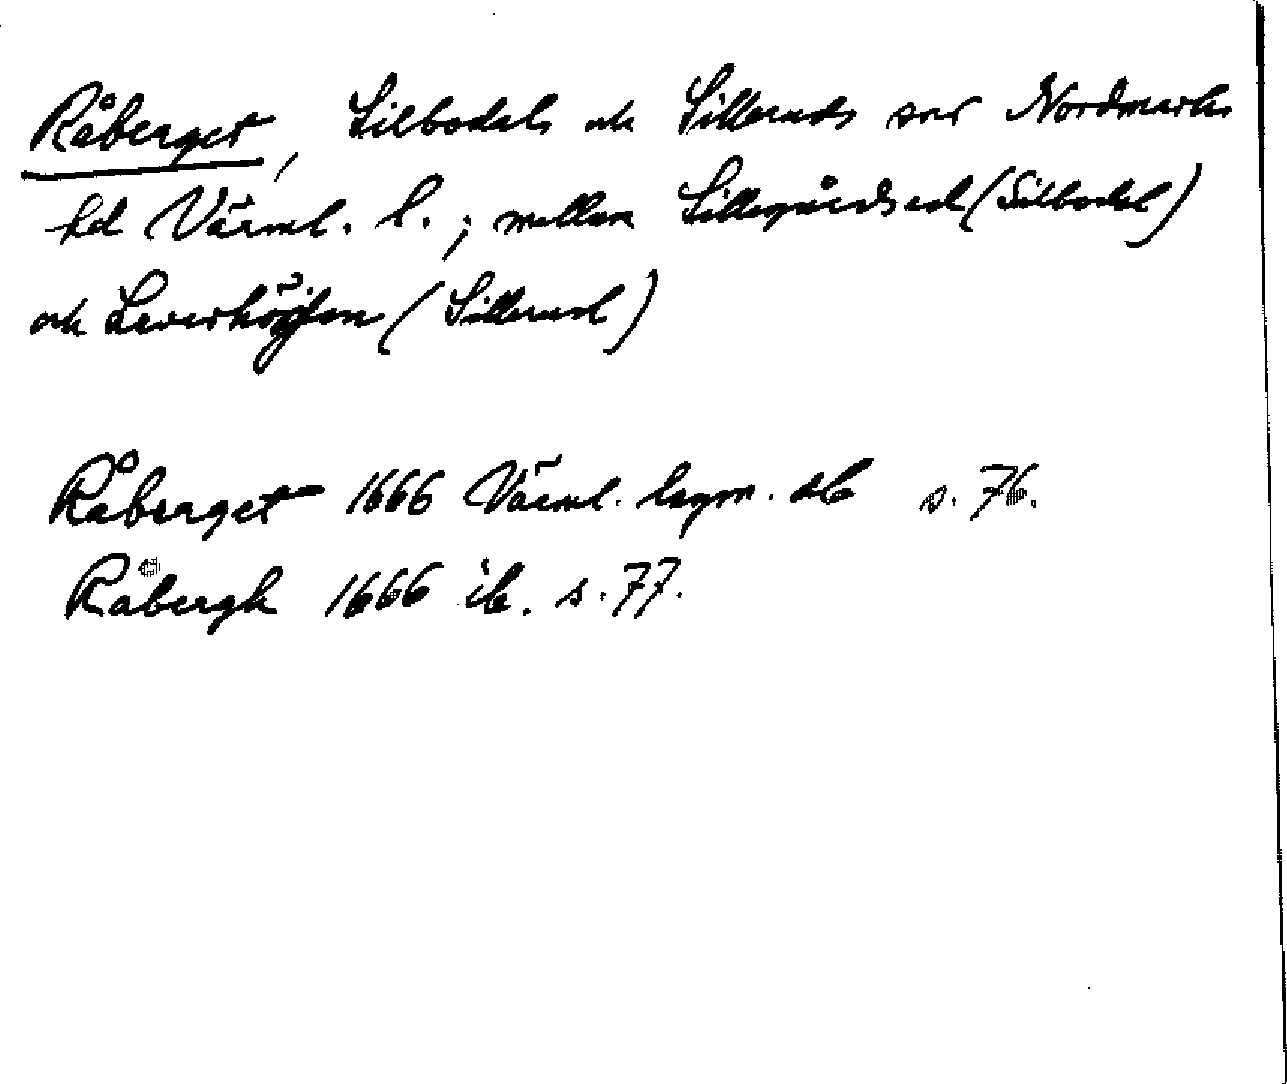 Råberget, Silbodals och Silleruds snr Nordmarks
hd Värml. l.; mellan Sillegårdsed (Silbodal)
och Leverhögen (Sillerud)
Råberget 1666 Värml. lagm. db s. 76.
Råbergh 1666 ib. s. 77.